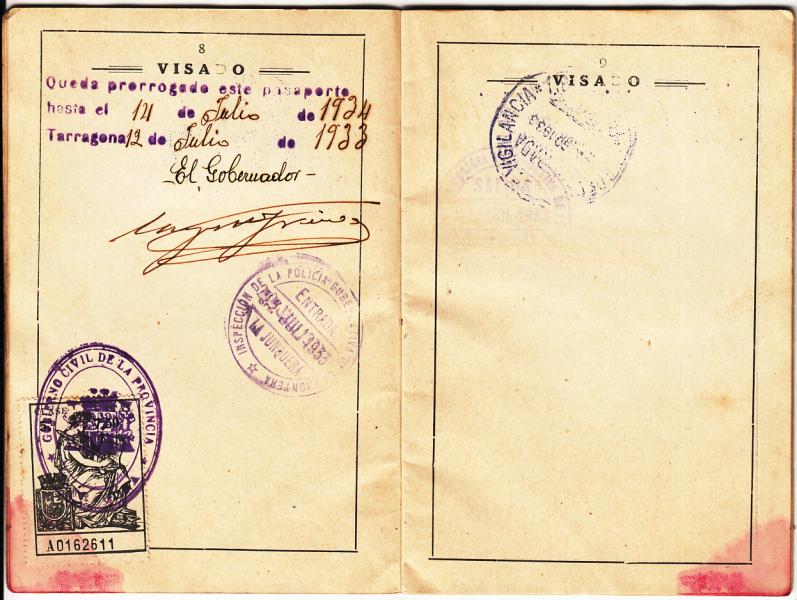 8
VISADO
Queda prorrogado este pasaporte
hasta el 14 de Julio de 1934
Tarragona 12 de Julio de 1933
El Gobernador-
INSPECCIÓN DE LA POLICIA GUBE
ENTRADA
1933
LA JUNQUERA
FRONTERA
GOBIERNO CIVIL DE LA PROVINCIA
CLASE
A0162611
9
VISADO
VIGILANCIA
SALIDA